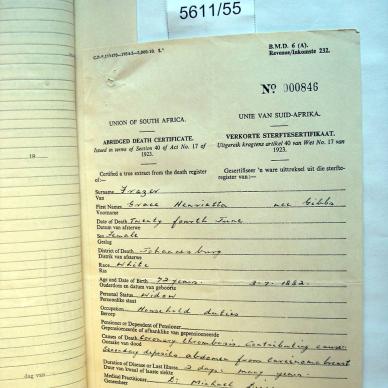 5611/55
B.M.D. 6 (A).
Revenue/Inkomste 232.
No 000846
UNION OF SOUTH AFRICA. UNIE VAN SUID-AFRIKA.
ABRIDGED DEATH CERTIFICATE. VERKORTE STERFTESERTIFIKAAT.
Issued in terms of Section 40 of Act No. 17 of 1923. Uitgereik kragtens artikel 40 van Wet No. 17 van 1923.
Certified a true extract from the death register of:— Gesertifiseer 'n ware uittreksel uit die sterfteregister van:—
Surname Frazer
Van
First Names Grace Henrietta nee Gibbs
Voorname
Date of Death Twenty fourth June
Datum van afsterwe
Sex Female
Geslag
District of Death Johannesburg
Distrik van afsterwe
Race White
Ras
Age and Date of Birth 72 years. 1882
Ouderdom en datum van geboorte
Personal Status Widow
Persoonlike staat
Occupation Household duties
Beroep
Pensioner or Dependent of Pensioner
Gepensioneerde of afhanklike van gepensioneerde
Causes of Death Coronary thrombosis contributing cause:
Oorsake van dood
Secondary deposits abdomen from carcinoma breast
Duration of Illness 2 days. many years.
Duur van siekte
Medical Practitioner Dr. Michael
Geneesheer
19
dag van